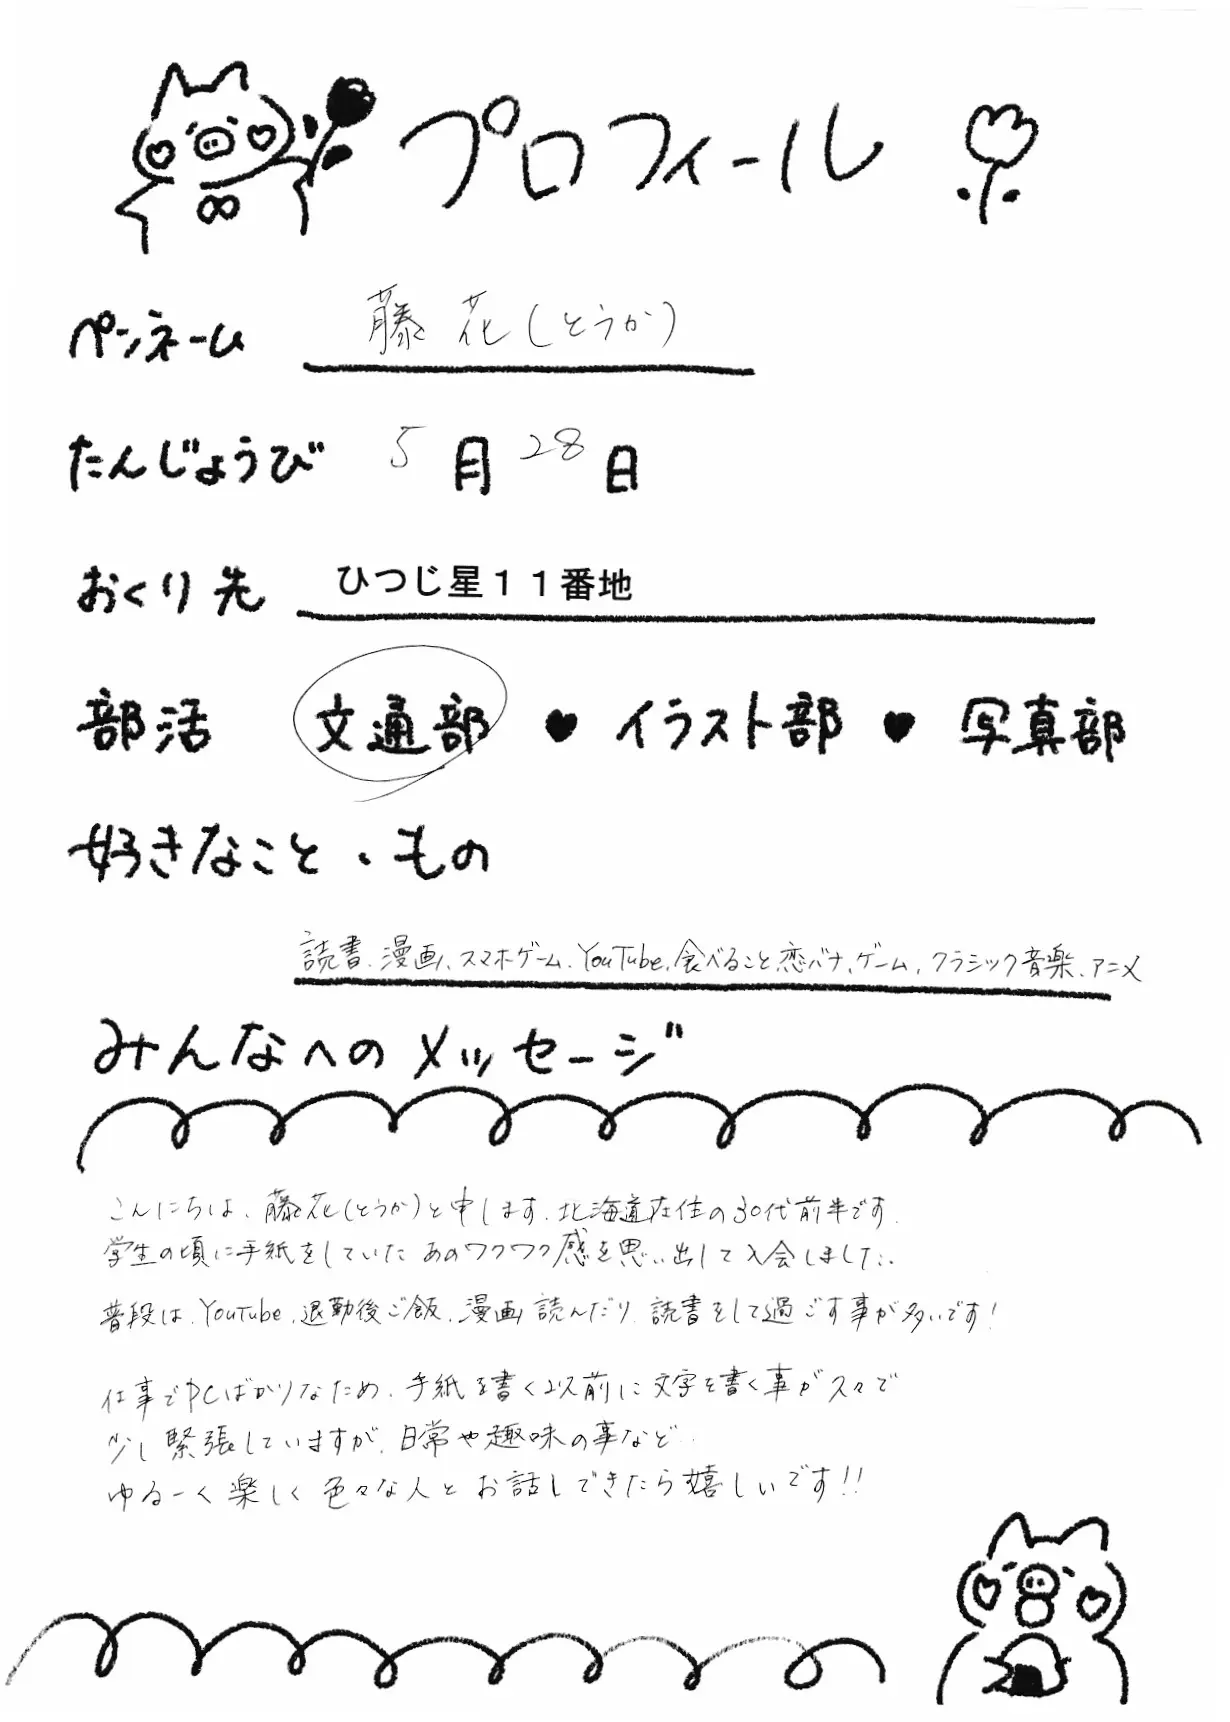 プロフィール
ペンネーム 藤花(とうか)
たんじょうび 5月28日
おくり先 ひつじ星11番地
部活 文通部 ♥ イラスト部 ♥ 写真部
好きなこと・もの
読書、漫画、スマホゲーム、YouTube、食べること、恋バナ、ゲーム、クラシック音楽、アニメ
みんなへのメッセージ
こんにちは、藤花(とうか)と申します。北海道在住の30代前半です。
学生の頃に手紙をしていたあのワクワク感を思い出して入会しました。
普段は、YouTube、退勤後ご飯、漫画読んだり、読書をして過ごす事が多いです!
仕事でPCばかりなため、手紙を書く以前に文字を書く事が久々で
少し緊張していますが、日常や趣味の事など
ゆるーく楽しく色々な人とお話しできたら嬉しいです!!